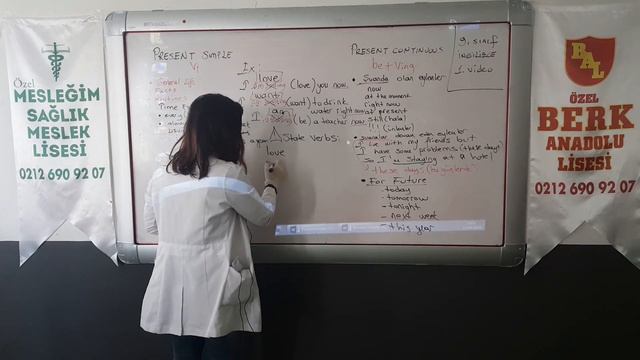 Özel
MESLEĞİM
SAĞLIK
MESLEK
LİSESİ
0212 690 92 07
PRESENT SIMPLE
V1
General Life
Facts
Time
love
(love) you now.
want
(want) to drink
water right now
am
(be) a teacher now
State Verbs:
love
PRESENT CONTINUOUS
be+Ving
Şuanda olan eylemler
now
at the moment
right now
at present
Still (hala)
!!!
devam eden eylemler
I live with my friends but
I have some problems these days
So I'm Staying at a hotel
these days
For Future
- today
- tomorrow
- tonight
- next week
- this year
9. SINIF
INGILIZCE
1. Video
BAL
ÖZEL
BERK
ANADOLU
LİSESİ
0212 690 92 07